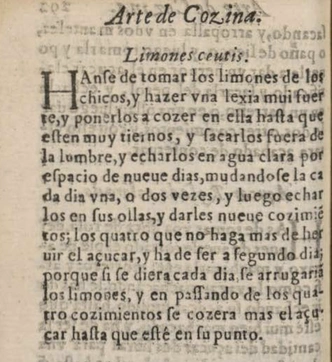 Arte de Cozina.
Limones ceutis.
HAnse de tomar los limones de los
chicos, y hazer vna lexia mui fuer
te, y ponerlos a cozer en ella hasta que
esten muy tiernos, y sacarlos fuera de
la lumbre, y echarlos en agua clara por
espacio de nueue dias, mudandose la ca
da dia vna, o dos vezes, y luego echar
los en sus ollas, y darles nueue cozimiē
tos; los quatro que no haga mas de her
uir el açucar, y ha de ser a segundo dia;
porque si se diera cada dia se arrugariā
los limones, y en passando de los qua-
tro cozimientos se cozera mas el açu-
car hasta que estè en su punto.